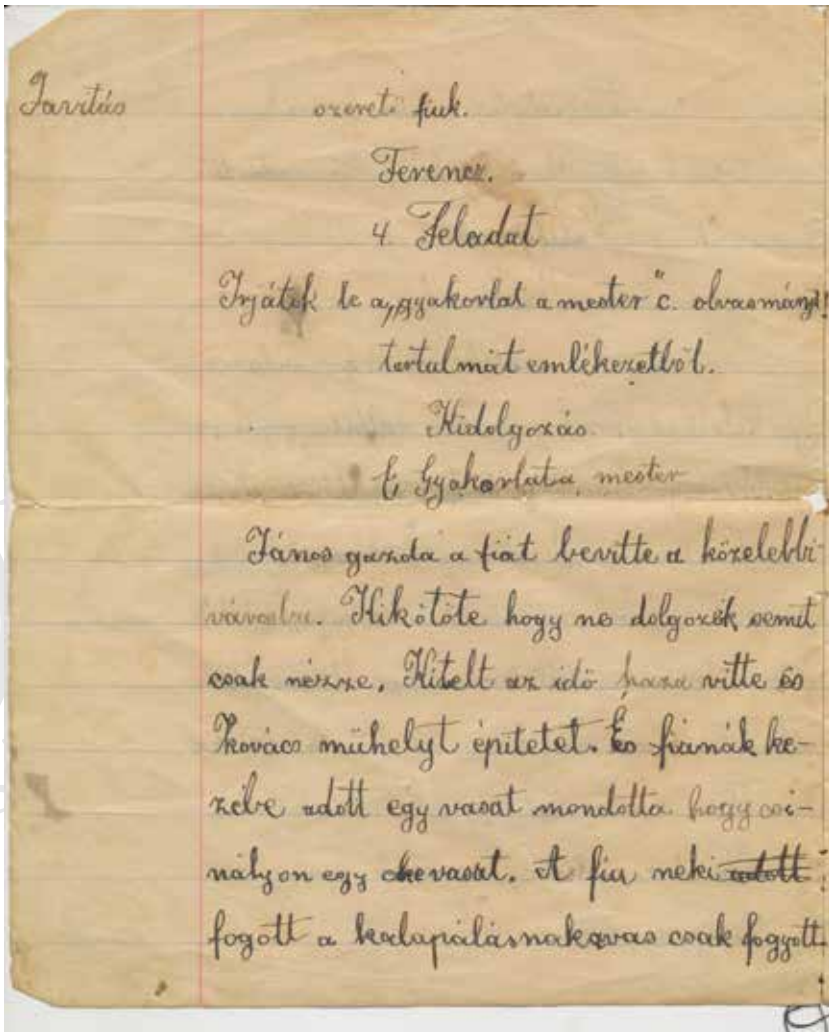 Javitás
szerető fiuk.
Ferencz.
4 Feladat
Irjátok le a „gyakorlat a mester" c. olvasmány
tartalmát emlékezetből.
Kidolgozás
Gyakorlat a mester
János gazda a fiát bevitte a közelebbi
városba. Kikötöte hogy ne dolgozék semit
csak nézze. Kitelt az idő haza vitte és
Kovács mühelyt épitetet. És fiának ke-
zébe adott egy vasat mondotta hogy csi-
nályon egy ekevasat. A fiu neki adott
fogott a kalapálásnak a vas csak fogyott